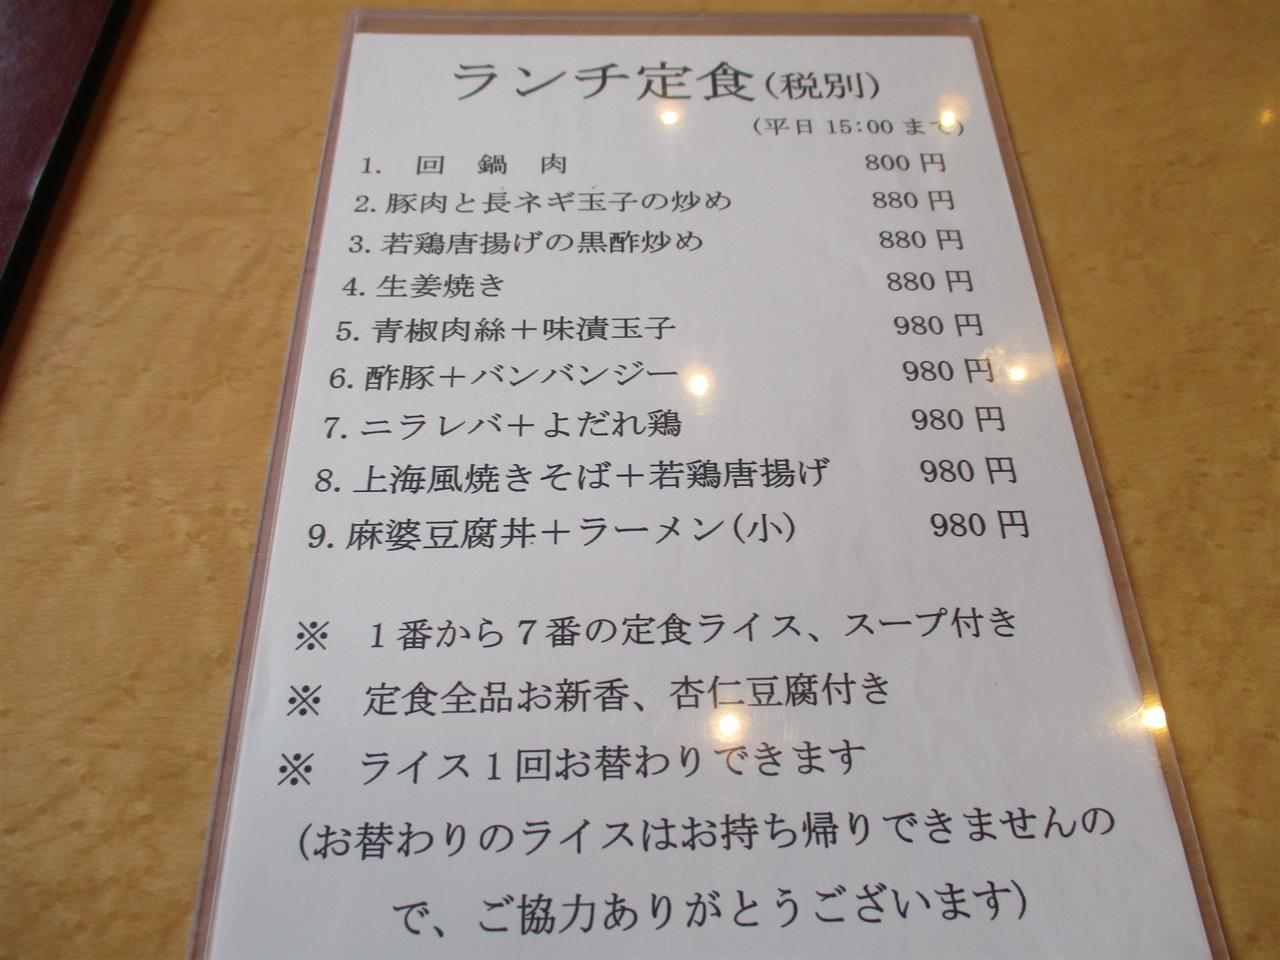 ランチ定食(税別)
(平日 15:00 まで)
1. 回 鍋 肉 800 円
2. 豚肉と長ネギ玉子の炒め 880 円
3. 若鶏唐揚げの黒酢炒め 880 円
4. 生姜焼き 880 円
5. 青椒肉絲＋味漬玉子 980 円
6. 酢豚＋バンバンジー 980 円
7. ニラレバ＋よだれ鶏 980 円
8. 上海風焼きそば＋若鶏唐揚げ 980 円
9. 麻婆豆腐丼＋ラーメン(小) 980 円
※ 1番から7番の定食ライス、スープ付き
※ 定食全品お新香、杏仁豆腐付き
※ ライス1回お替わりできます
(お替わりのライスはお持ち帰りできませんの
で、ご協力ありがとうございます)